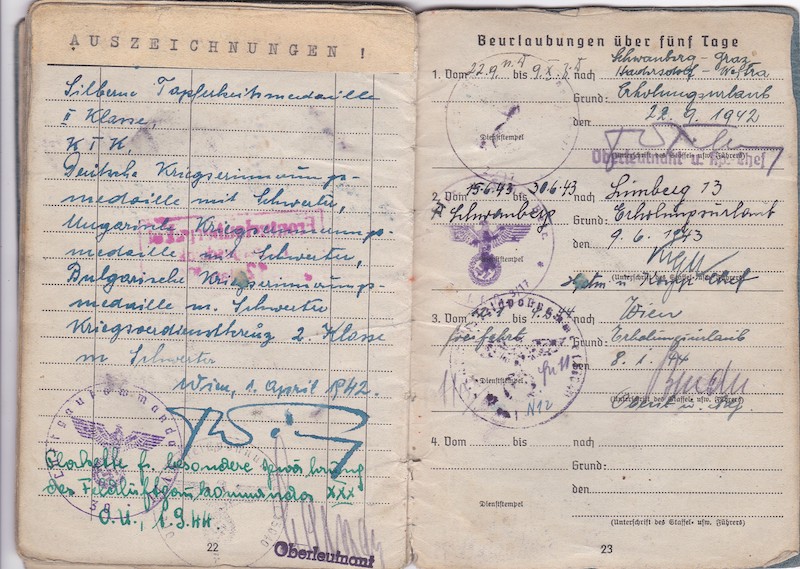 AUSZEICHNUNGEN !
Silberne Tapferkeitsmedaille
II Klasse,
K T K,
Deutsche Kriegserinnerungs-
medaille mit Schwerter,
Ungarische Kriegserinnerungs-
medaille m. Schwerter,
Bulgarische Kriegserinnerungs-
medaille m. Schwerter
Kriegsverdienstkreuz 2. Klasse
m Schwerter
Wien, 1. April 1942.
Plakette f. besondere Bewährung
des Feldluftgaukommandos XXX
O.U., 1.9.44.
Oberleutnant
22
Beurlaubungen über fünf Tage
Schwanberg - Graz
1. Vom 22.9 bis 9. X. nach
Grund: Erholungsurlaub
den 22. 9. 1942
Dienststempel
(Unterschrift des Staffel- usw. Führers)
Oberleutnant u. Kp. Chef
2. Vom 15.6.43 bis 30.6.43 nach Limberg 13
Schwanberg
Grund: Erholungsurlaub
den 9. 6. 1943
Dienststempel
(Unterschrift des Staffel- usw. Führers)
Hptm u. Komp Chef
3. Vom bis nach Wien
Grund: Erholungsurlaub
den 8. 1. 44
Dienststempel
(Unterschrift des Staffel- usw. Führers)
4. Vom bis nach
Grund:
den
Dienststempel
(Unterschrift des Staffel- usw. Führers)
23